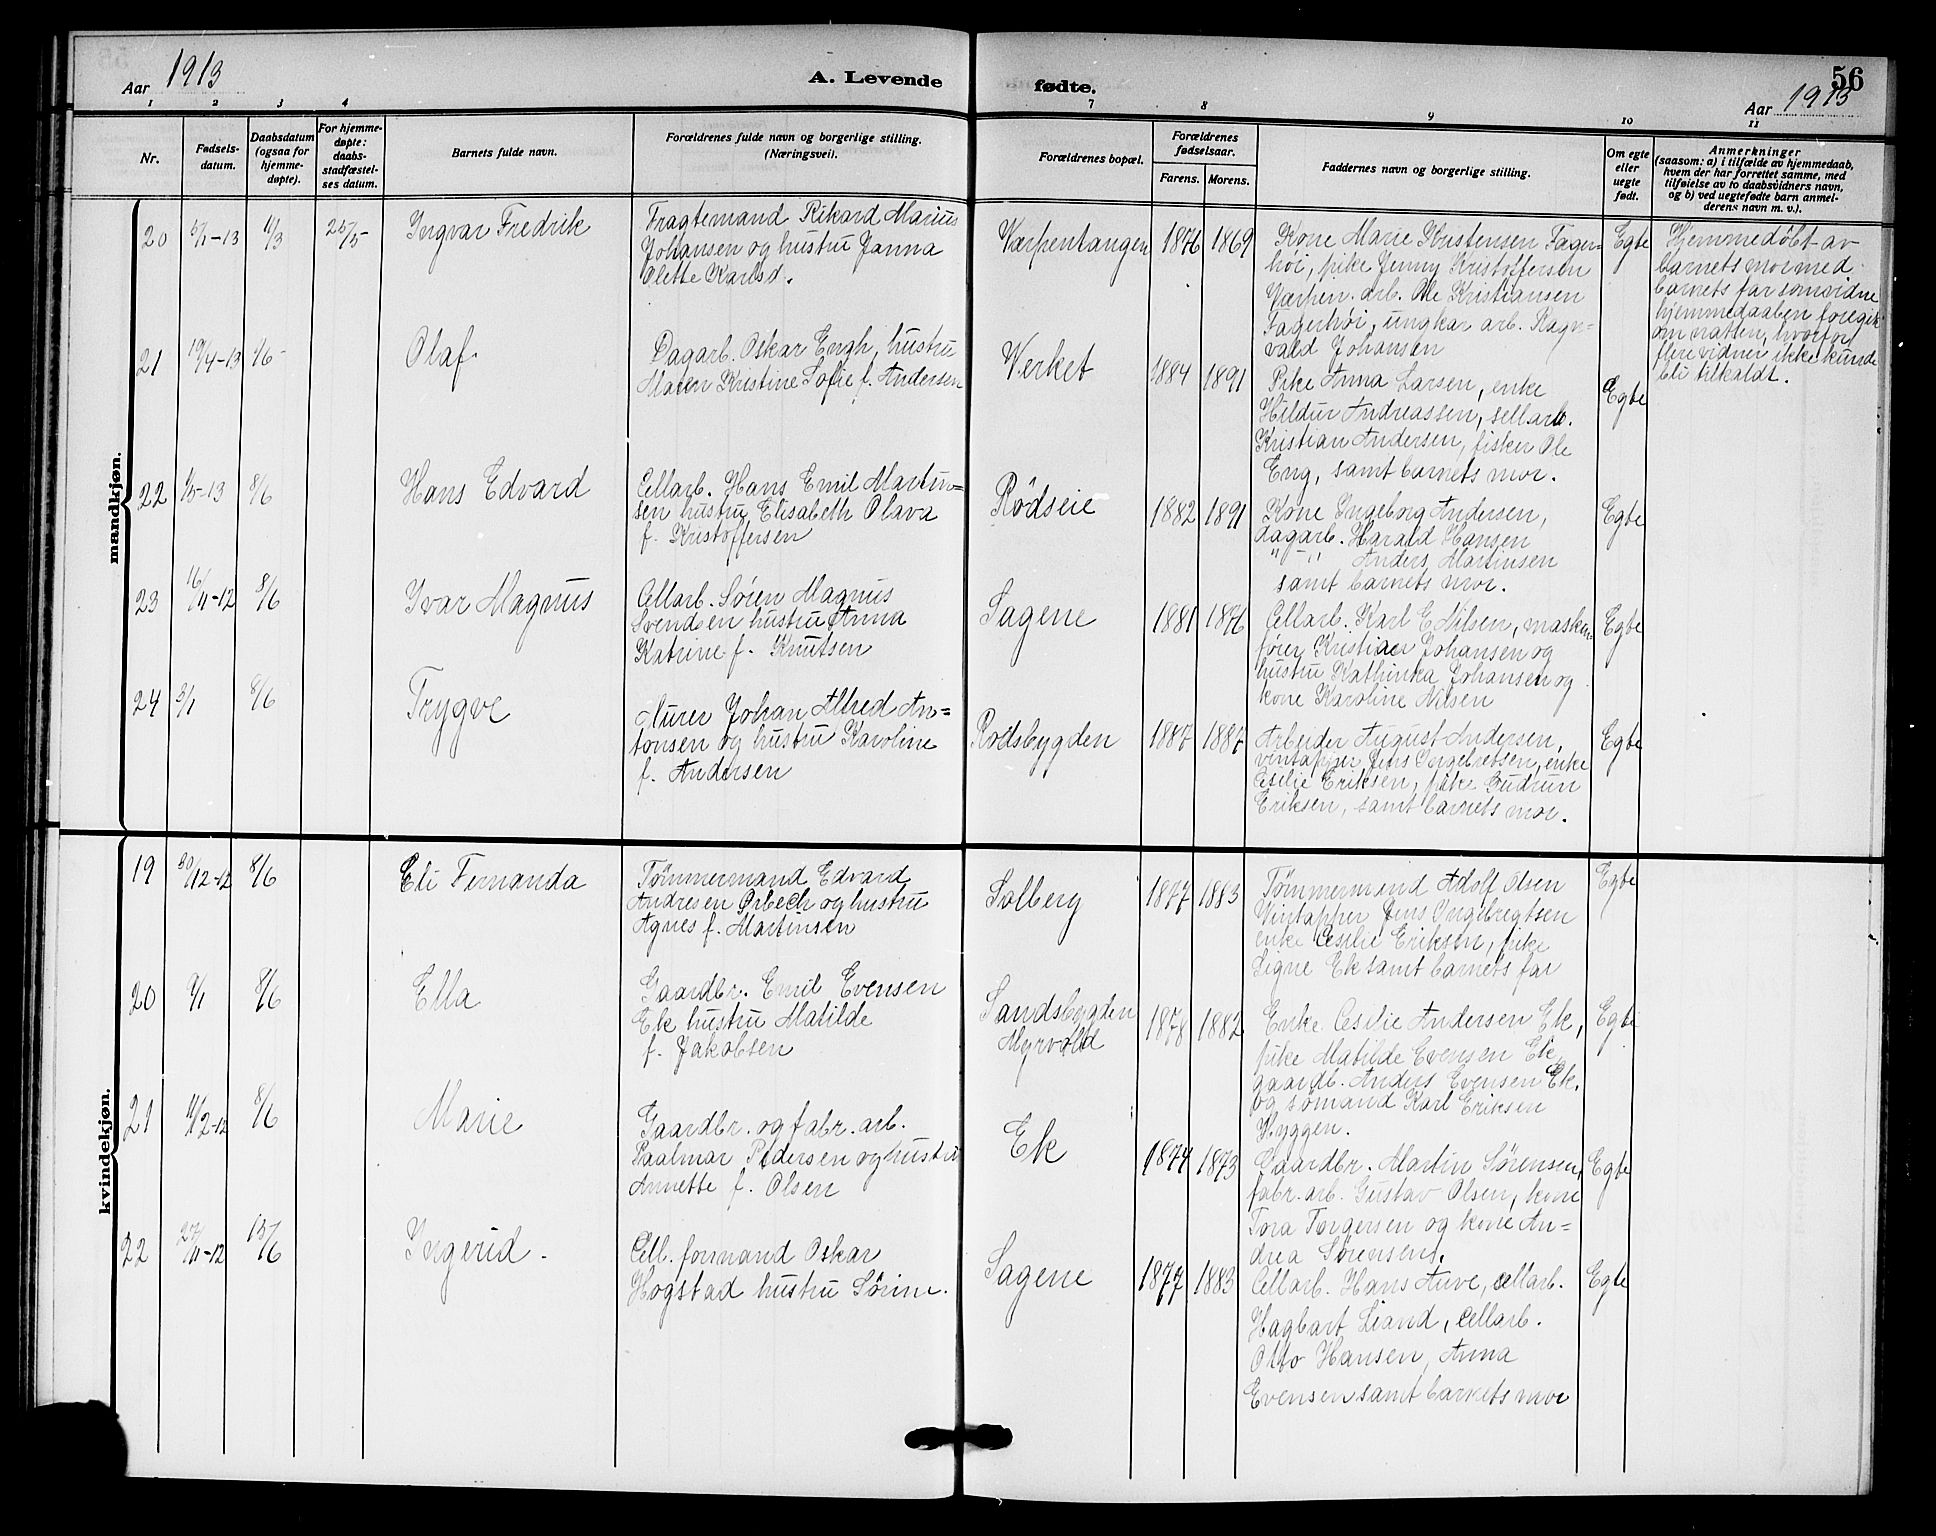 56
Aar 1913
A. Levende fødte.
Aar 1913
1 2 3 4 7 8 9 10 11
Nr.
Fødsels-
datum.
Daabsdatum
(ogsaa for
hjemme-
døpte).
For hjemme-
døpte:
daabs-
stadfæstel-
ses datum.
Barnets fulde navn.
Forældrenes fulde navn og borgerlige stilling.
(Næringsvei).
Forældrenes bopæl.
Forældrenes
fødselsaar.
Farens. Morens.
Faddernes navn og borgerlige stilling.
Om egte
eller
uegte
født.
Anmerkninger
(saasom: a) i tilfælde av hjemmedaab,
hvem der har forrettet samme, med
tilføielse av to daabsvidners navn,
og b) ved uegtefødte barn anmel-
derens navn m. v.).
mandkjøn.
20 5/1-13 11/3 25/5 Ingvar Fredrik
Fragtemand Rikard Marius
Johansen og hustru Janna
Olette Karlsd.
Værpentangen 1876 1869
Kone Marie Kristensen Fager-
høi, pike Jenny Kristoffersen
Værpen. arb. Ole Kristiansen
Fagerhøi, ungkar arb. Ragn-
vald Johansen
Egte
Hjemmedöbt av
barnets mor med
barnets far som vidne
hjemmedaaben foregik
om natten, hvorfor
flere vidner ikke kunde
bli tilkaldt.
21 19/4-13 1/6 Olaf
Dagarb. Oskar Engh, hustru
Maren Kristine Sofie f. Andersen
Verket 1884 1891
Pike Anna Larsen, enke
Hildur Andreassen, sellarb.
Kristian Andersen, fisker Ole
Eng, samt barnets mor.
Egte
22 1/5-13 8/6 Hans Edvard
Cellarb. Hans Emil Martin=
sen hustru Elisabeth Olava
f. Kristoffersen
Rödseie 1882 1891
Kone Ingeborg Andersen,
dagarb. Harald Hansen
" - " Anders Martinsen
samt barnets mor.
Egte
23 16/11-12 8/6 Ivar Magnus
Cellarb. Sören Magnus
Svendsen hustru Anna
Katrine f. Knutsen
Sagene 1881 1876
Cellarb. Karl E Nilsen, maskin-
fører Kristian Johansen og
hustru Kathinka Johansen og
kone Karoline Nilsen
Egte
24 3/1 8/6 Trygve
Murer Johan Alfred An=
tonsen og hustru Karoline
f. Andersen
Rodsbygden 1887 1887
Arbeider August Andersen,
vintapper Jens Ingebretsen, enke
Cesilie Eriksen, pike Gudrun
Eriksen, samt barnets mor.
Egte
kvindekjøn.
19 30/12-12 8/6 Eli Fernanda
Tömmermand Edvard
Andresen Orbech og hustru
Agnes f. Martinsen
Solberg 1877 1883
Tömmermand Adolf Olsen
Vintapper Jens Ingebregtsen
enke Cesilie Eriksen, pike
Signe Ek samt barnets far
Egte
20 9/1 8/6 Ella
Gaardbr. Emil Evensen
Ek hustru Matilde
f. Jakobsen
Sandsbygden
Myrvold
1878 1882
Enke Cesilie Andersen Ek,
pike Matilde Evensen Ek,
gaardb. Anders Evensen Ek.
og sömand Karl Eriksen
Hyggen.
Egte
21 11/2-12 8/6 Marie
Gaardbr. og fabr. arb.
Paalmar Pedersen og hustru
Annette f. Olsen
Ek 1874 1873
Gaardbr. Martin Sörensen,
fabr. arb. Gustav Olsen, kone
Tora Torgersen og kone An=
drea Sörensen.
Egte
22 27/11-12 15/6 Ingerid
Cell. formand Oskar
Hogstad hustru Sörine.
Sagene 1877 1883
Cellarb. Hans Auve, cellarb.
Hagbart Liand, cellarb.
Otto Hansen, Anna
Evensen samt barnets mor
Egte